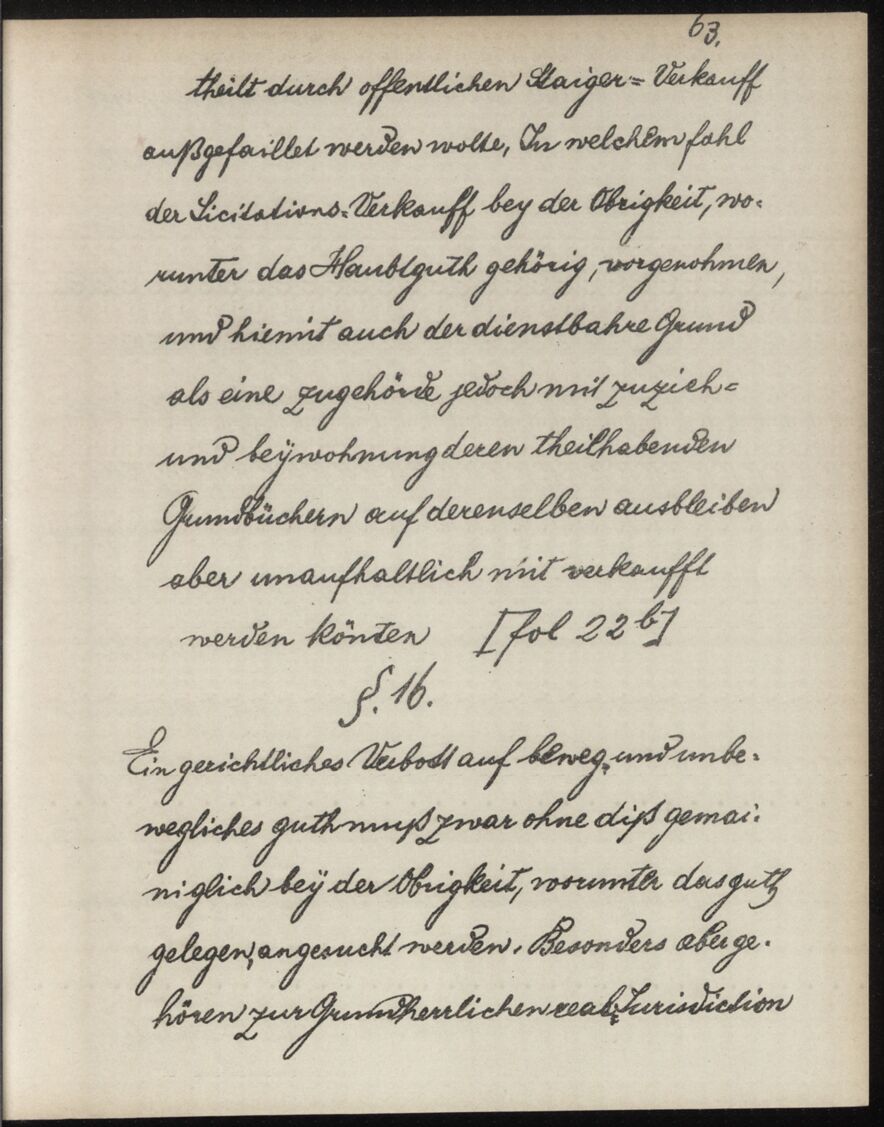 63.
theilt durch offentlichen Staiger= Verkauff
außgefaillet werden wolte, In welchem fahl
der Licitations=Verkauff bey der Obrigkeit, wo=
runter das Haubtguth gehörig, vorgenohmen,
und hiemit auch der dienstbahre Grund
als eine zugehörde jedoch mit zuzieh=
und beÿwohnung deren theilhabenden
Grundbüchern auf derenselben ausbleiben
aber unaufhaltlich mit verkaufft
werden könten [fol 22b]
§. 16.
Ein gerichtliches Verbott auf beweg= und unbe=
wegliches guth muß zwar ohne diß gemai=
niglich beÿ der Obrigkeit, worunter das guth
gelegen, angesucht werden. Besonders aber ge=
hören zur Grundherrlichen real=Jurisdiction